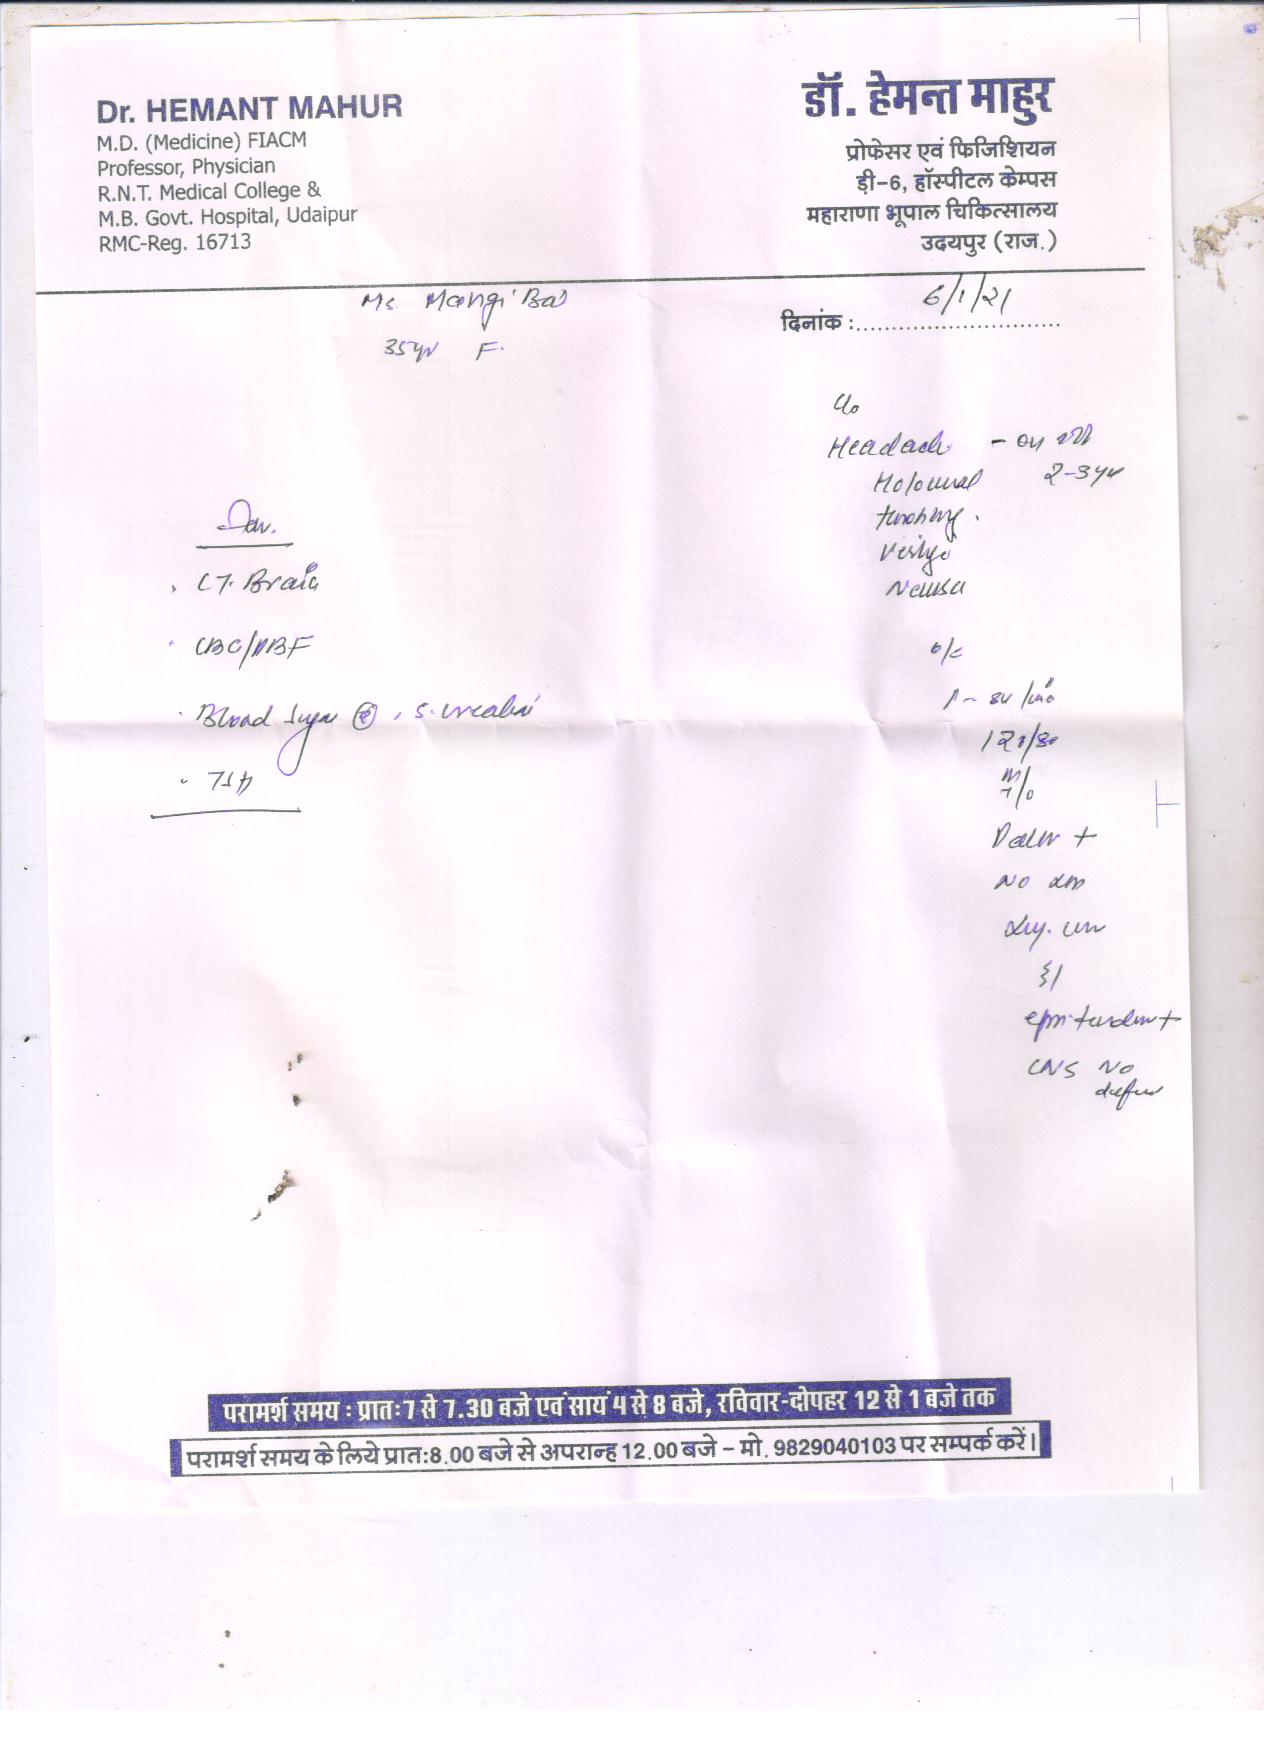 Dr. HEMANT MAHUR
M.D. (Medicine) FIACM
Professor, Physician
R.N.T. Medical College &
M.B. Govt. Hospital, Udaipur
RMC-Reg. 16713
डॉ. हेमन्त माहुर
प्रोफेसर एवं फिजिशियन
डी-6, हॉस्पीटल केम्पस
महाराणा भूपाल चिकित्सालय
उदयपुर (राज.)
Ms. Mangi Bai
35yr F.
दिनांक : 6/1/21
C/o
Headach -
2-3yr
Vertigo
Nausea
O/E
P - 84 /min
120/80
No
epi. tender +
CNS No
Inv.
CT. Brain
CBC/PBF
Blood Sugar (R), S. Creatini
TSH
परामर्श समय : प्रातः 7 से 7.30 बजे एवं सायं 4 से 8 बजे, रविवार-दोपहर 12 से 1 बजे तक
परामर्श समय के लिये प्रात:8.00 बजे से अपरान्ह 12.00 बजे - मो. 9829040103 पर सम्पर्क करें।